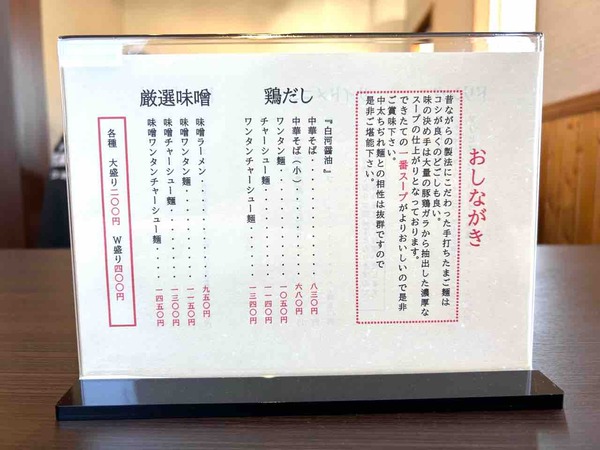 おしながき
昔ながらの製法にこだわった手打ちたまご麺は
コシが良くのどごしも良い。
味の決め手は大量の豚鶏ガラから抽出した濃厚な
スープの仕上がりとなっております。
できたての一番スープがよりおいしいので是非
ご賞味下さい。
中太ちぢれ麺との相性は抜群ですので
是非ご堪能下さい。
鶏だし
『白河醤油』
中華そば・・・・・・・・八三〇円
中華そば(小)・・・・・・六八〇円
ワンタン麺・・・・・・・一〇五〇円
チャーシュー麺・・・・・一一四〇円
ワンタンチャーシュー麺・・・・一三四〇円
厳選味噌
味噌ラーメン・・・・・・・九五〇円
味噌ワンタン麺・・・・・・一一五〇円
味噌チャーシュー麺・・・・一三〇〇円
味噌ワンタンチャーシュー麺・・・一四五〇円
各種 大盛り二〇〇円 W盛り四〇〇円